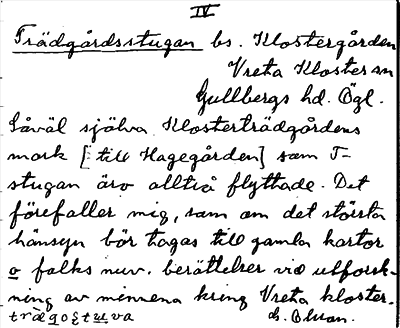 IV
Trädgårdsstugan bs. Klostergården
Vreta Kloster sn
Gullbergs hd. Ögl.
Såväl själva Klosterträdgårdens
mark [: till Hagegården] som T-
stugan äro alltså flyttade. Det
förefaller mig, som om det största
hänsyn bör tagas till gamla kartor
o folks nuv. berättelser vid utforsk-
ning av minnena kring Vreta kloster.
trägostuva